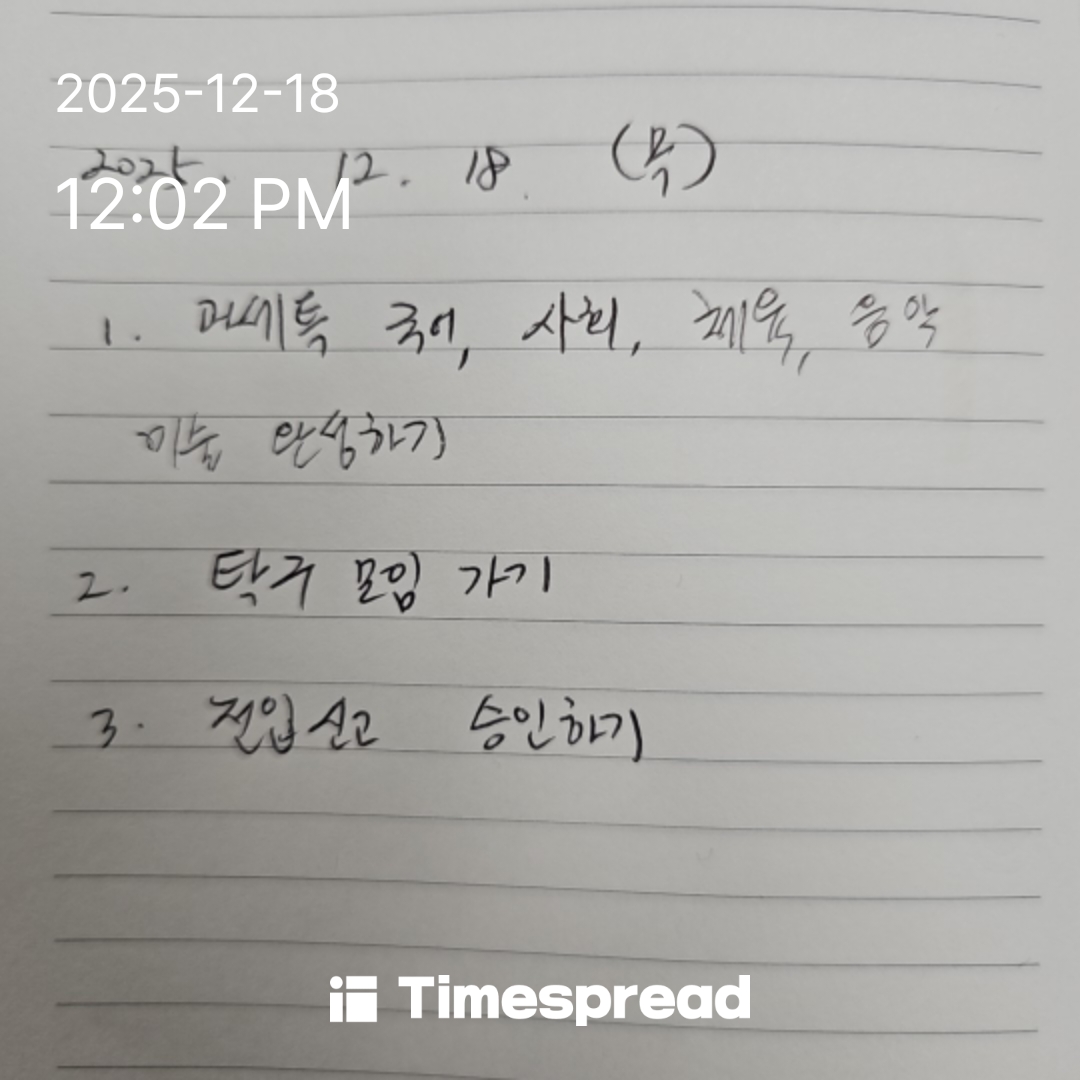 2025-12-18
2025. 12. 18. (목)
12:02 PM
1. 과세특 국어, 사회, 체육, 음악
미술 완성하기
2. 탁구 모임 가기
3. 전입신고 승인하기
Timespread